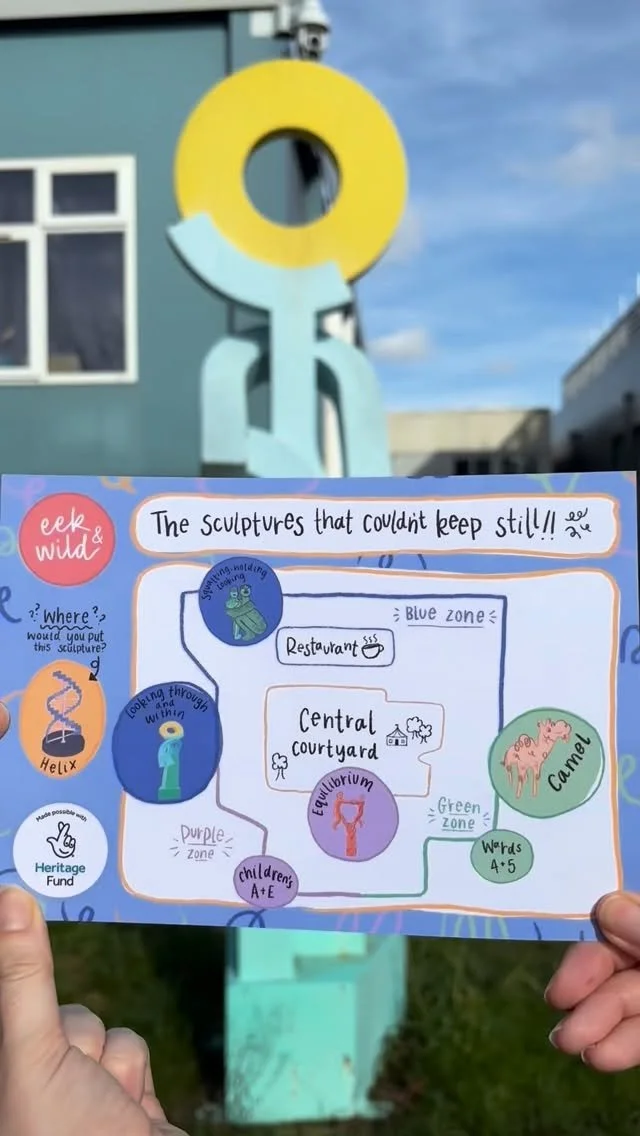 eek &
wild
The sculptures that couldn't keep still!!
?? Where??
would you put
this sculpture?
Helix
Made possible with
Heritage
Fund
Squatting, holding
looking
Blue zone
Restaurant
Looking through
and
within
Central
courtyard
Camel
Equilibrium
Green
zone
Purple
zone
Wards
4+5
children's
A+E